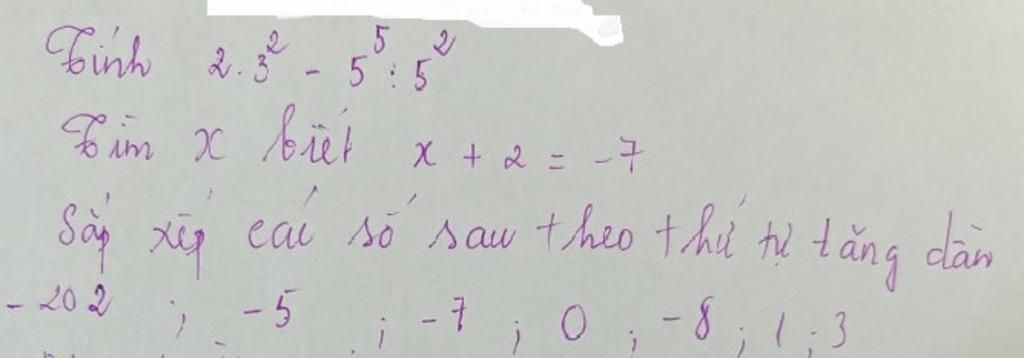 Tính 2.3² - 5⁵ : 5²
Tìm x biết x + 2 = -7
Sắp xếp các số sau theo thứ tự tăng dần
-202 ; -5 ; -7 ; 0 ; -8 ; 1 ; 3